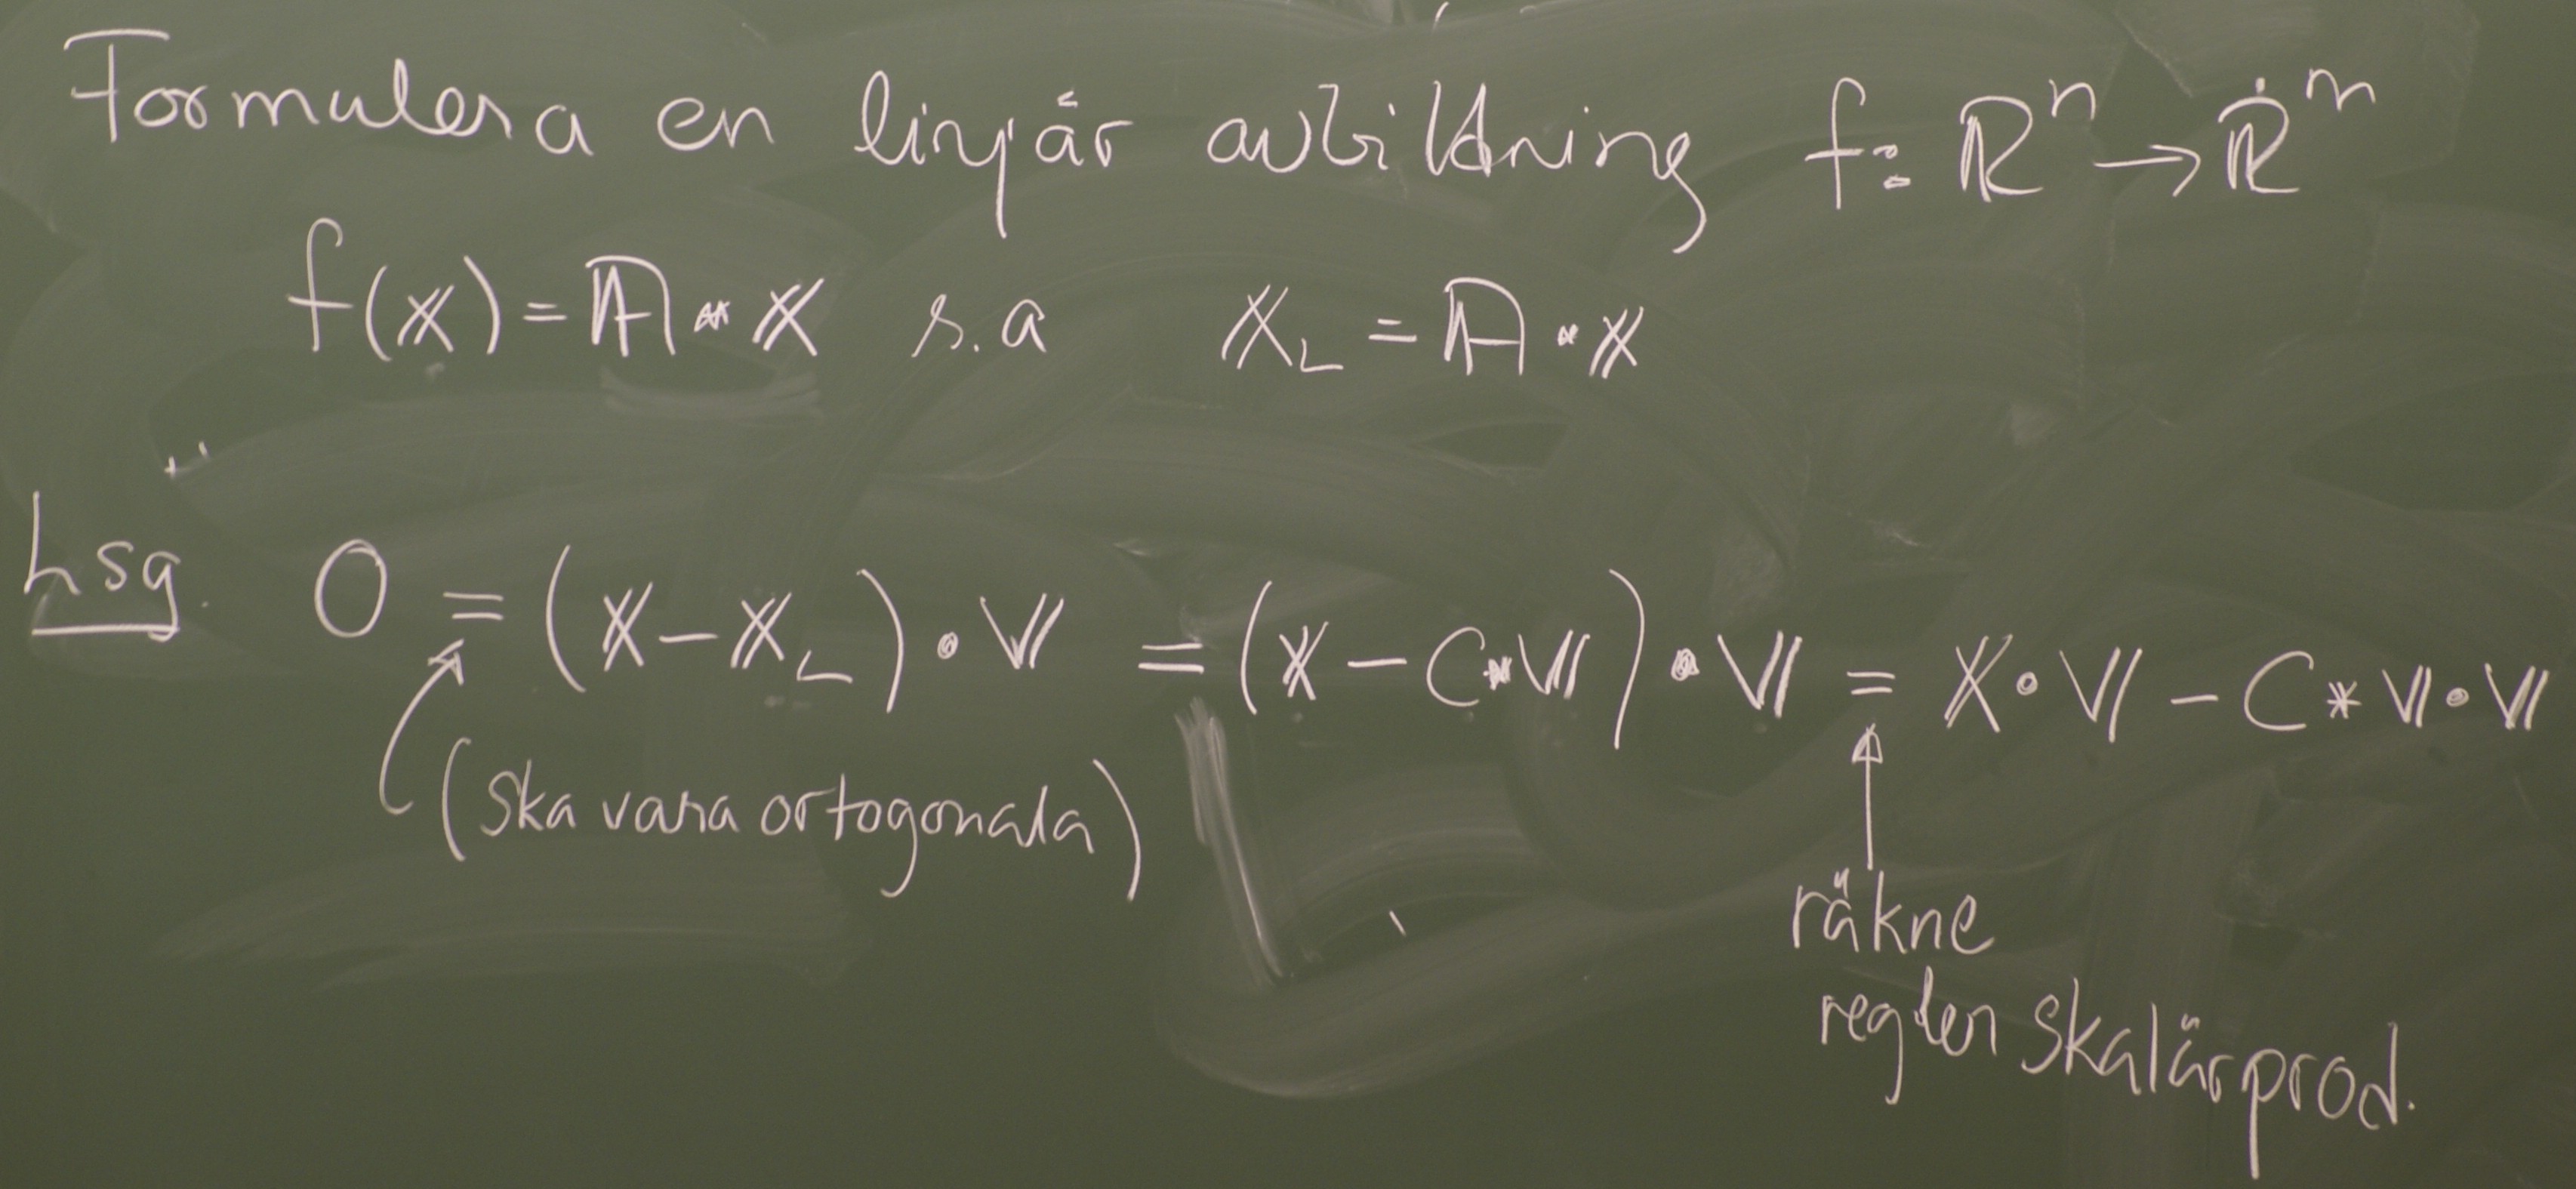 Formulera en linjär avbildning f: ℝⁿ → ℝᵐ
f(𝕏) = 𝔸 * 𝕏 s.a 𝕏_L = 𝔸 * 𝕏
Lsg. 0 = (𝕏 - 𝕏_L) • 𝕍 = (𝕏 - C * 𝕍) • 𝕍 = 𝕏 • 𝕍 - C * 𝕍 • 𝕍
(ska vara ortogonala)
räkne
regler skalärprod.